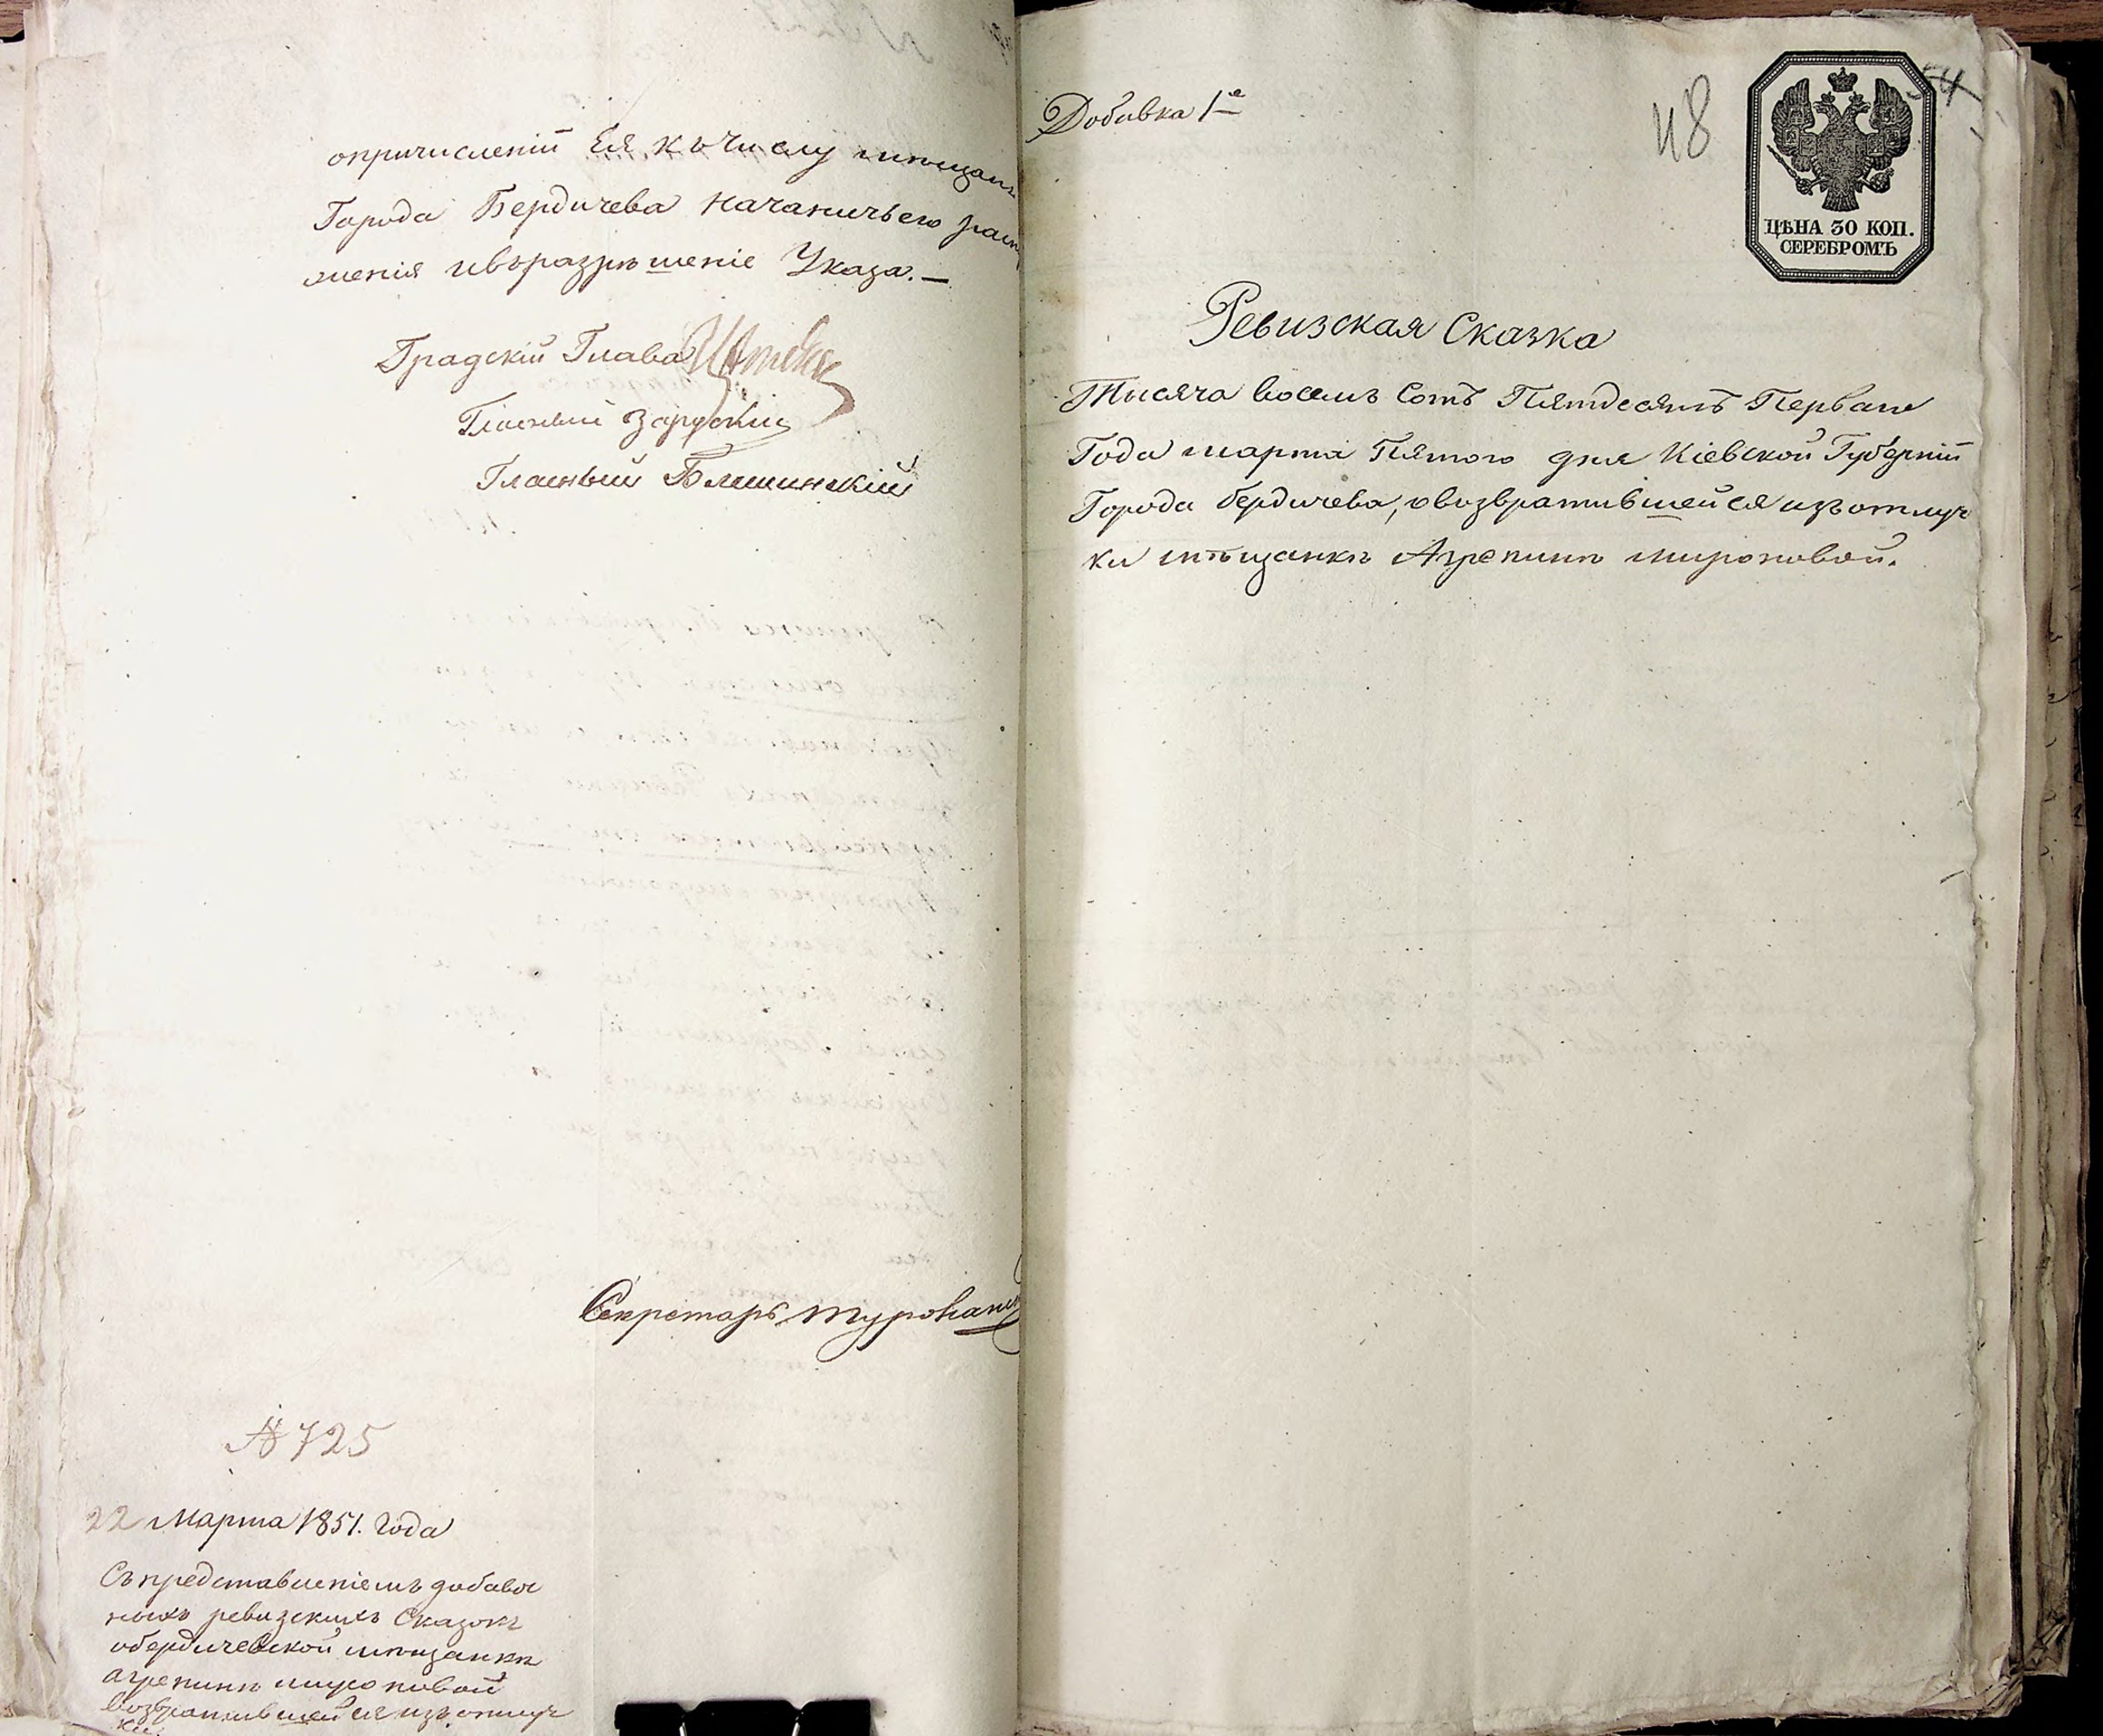 опричисленіи Ея къ Числу мѣщанъ
Города Бердичева Начаничьего
женія ивъразрѣшеніе Указа.—
Градскій Глава
Гласный Зарускій
Гласный
Секретарь
№ 725
22 Марта 1851. Года
Съпредставленіемъ добавоч
ныхъ ревизскихъ Сказокъ
обердичевской мѣщанкѣ
агрепинѣ мироновой
возвратившейся изъотлуч
ки
Добавка 1е
48
54
ЦѢНА 30 КОП.
СЕРЕБРОМЪ
Ревизская Сказка
Тысяча восемъ Сотъ Пятдесятъ Перваго
Года марта Пятого дня Кіевской Губерніи
Города бердичева, овозвратившейся изъотлуч
ки мѣщанкѣ Агрепинѣ мироновой.